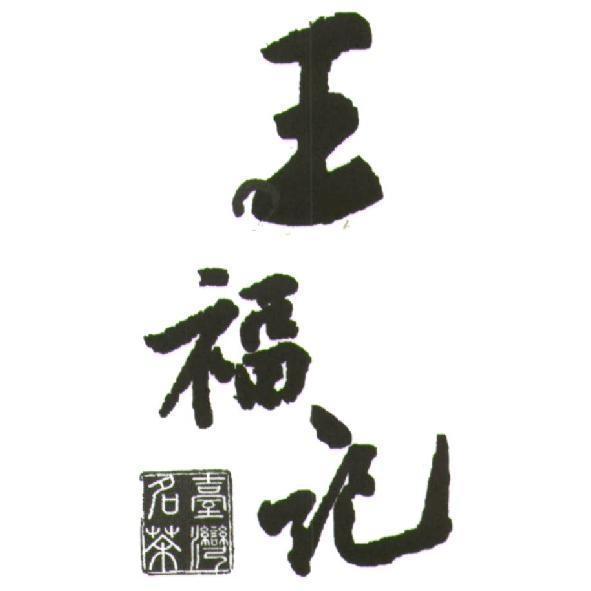 王福记
臺灣
名茶